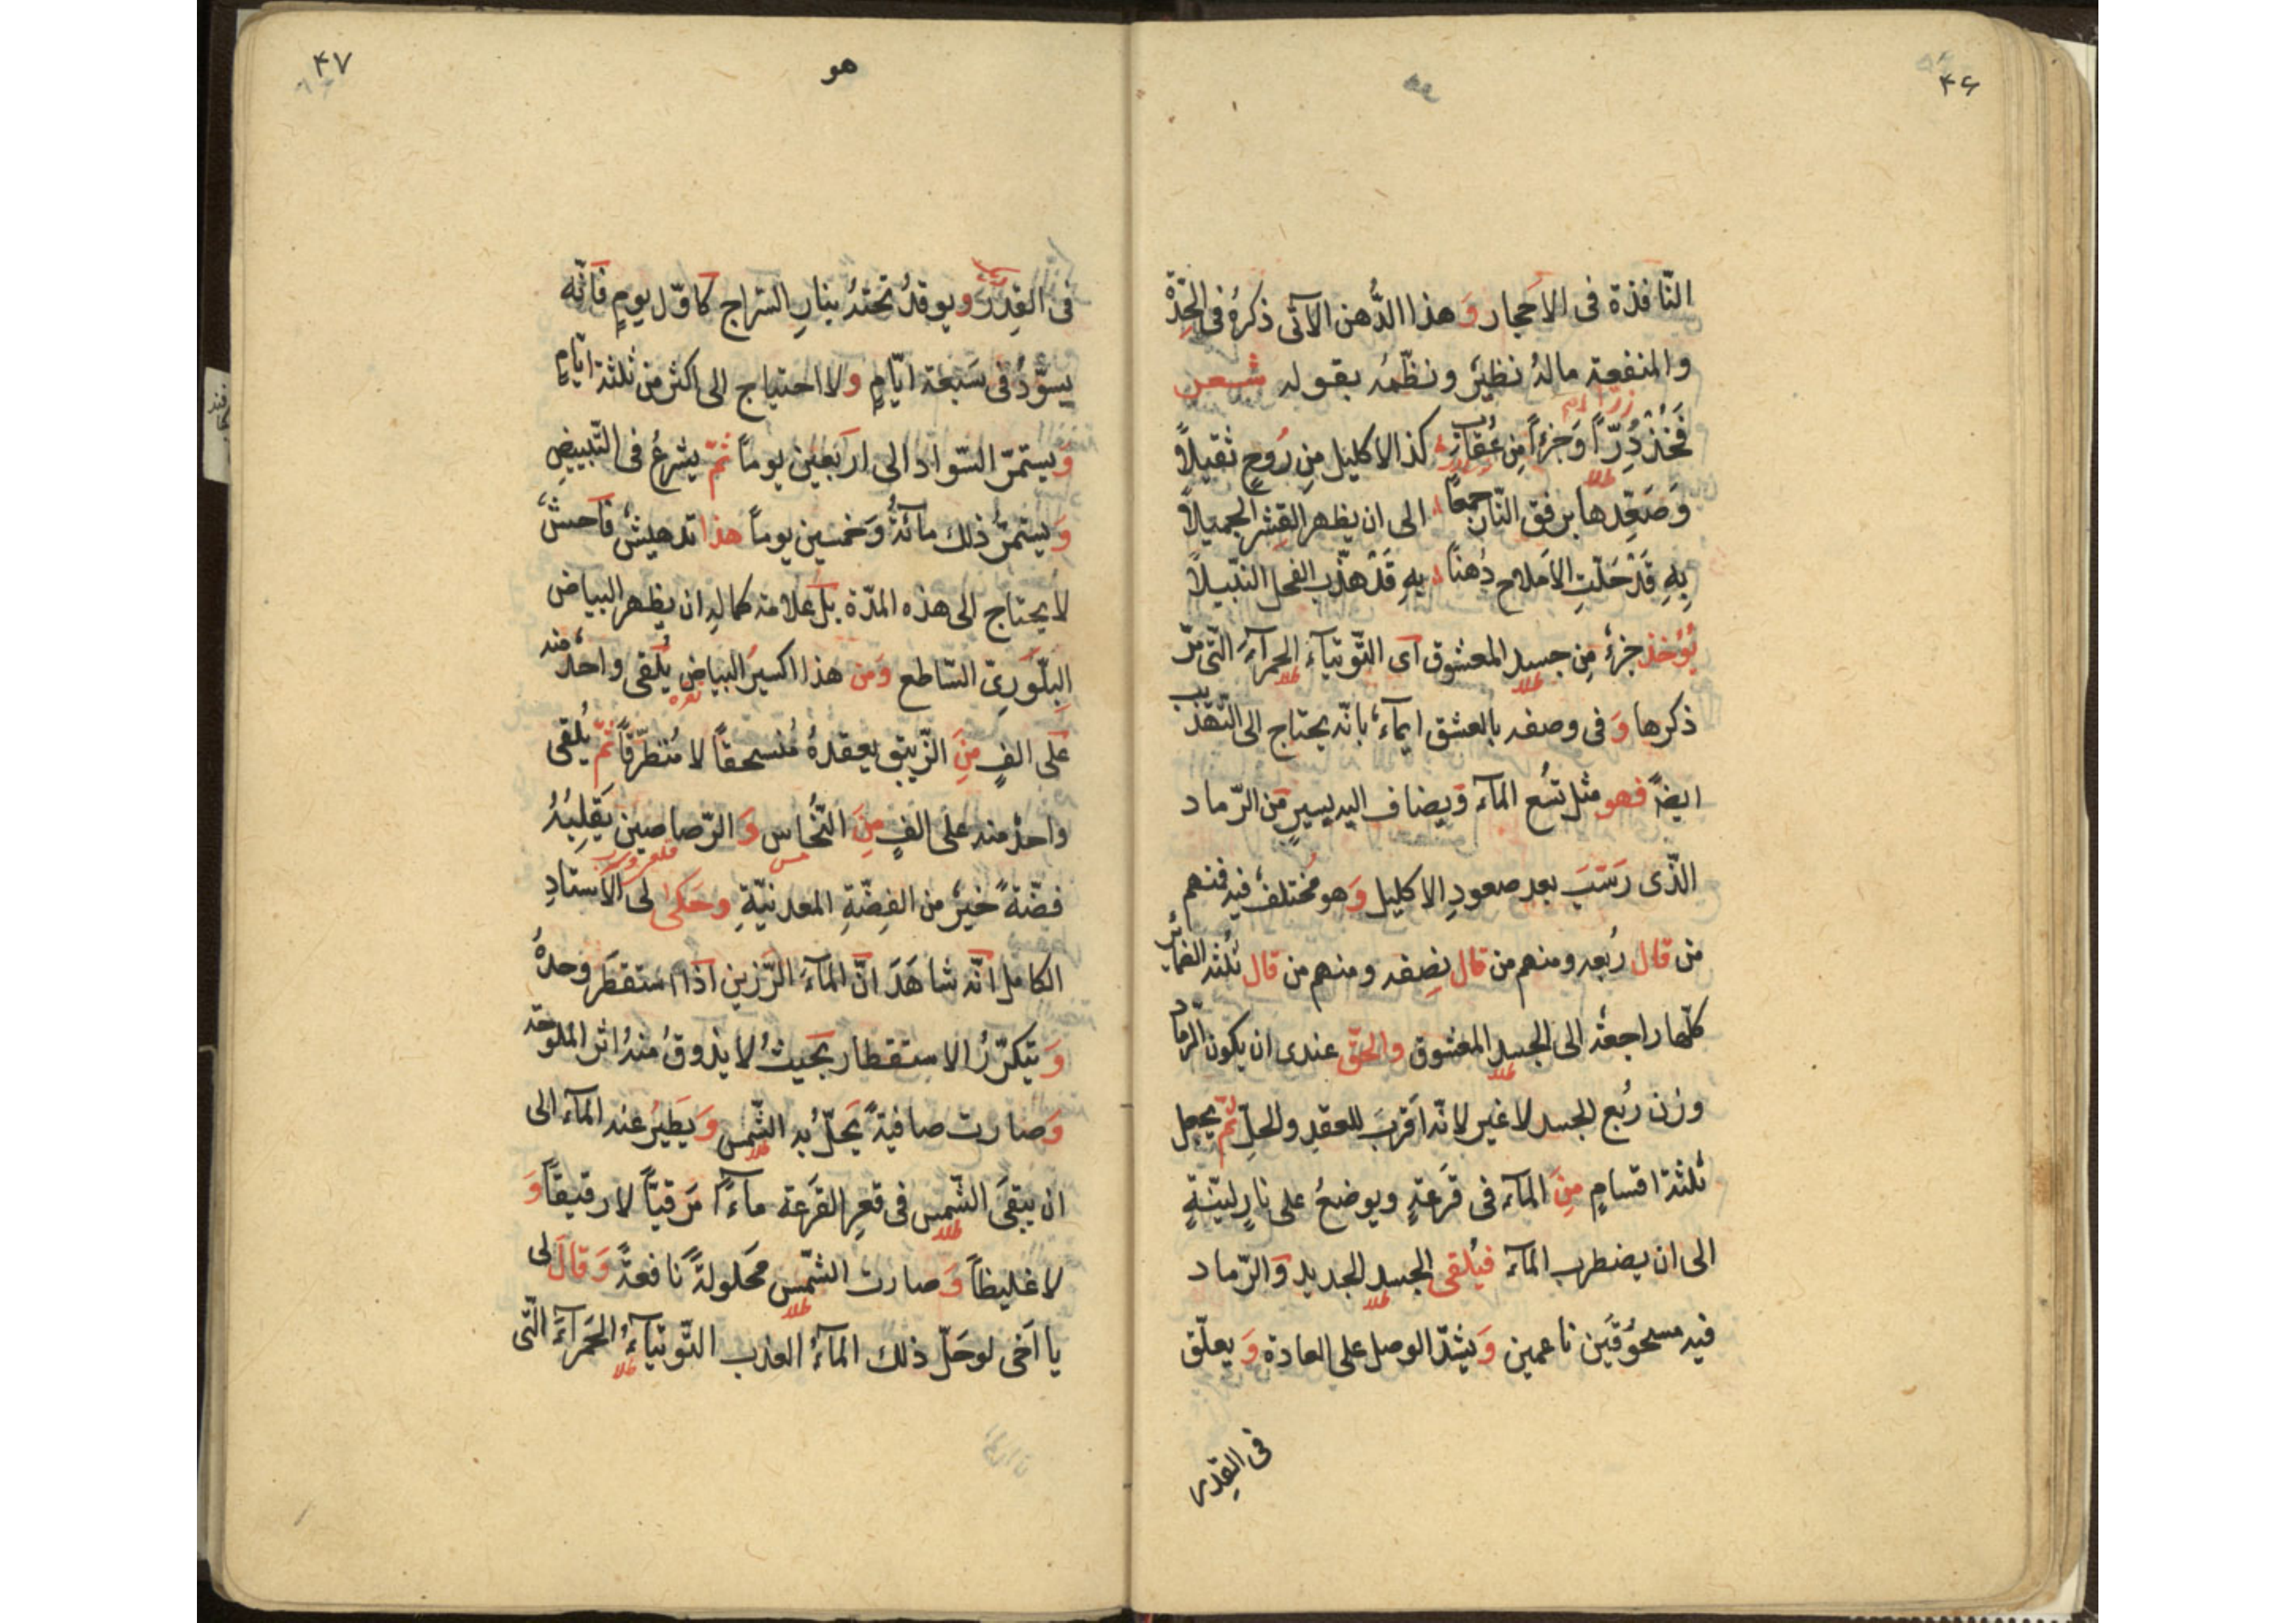 ۴۶
النّافذة فی الاحجار وَ هذا الدُّهن الآتی ذکرهُ فی الحِدّة
والمنفعة مالهُ نظیرٌ ونظّمهُ بقوله شعر
فَخُذْ دُرّاً وَجزءاً مِن عُقابٍ کذا الاکلیل مِن رُوحٍ ثقیلاً
وَصَعِّدها برفق النّار جمعاً الی ان یظهر القِشر الجمیلا
بِهِ قَدْ حَلّتِ الاَملاح دُهناً بِهِ قَدْ هذّب الفحل النبّیلا
یُؤخذ جزءٌ مِن جسدِ المعشوق ای التّوتیآءِ الحمرآءِ الّتی مرّ
طلا طلا
ذکرها وَ فی وصفه بالعشق ایمآءٌ بانّه یحتاج الی التّهذیب
ایضاً فهو مثل تُسع المآء وَیضاف الیه یسیرٍ مّن الرّماد
الّذی رَسَبَ بعد صعودِ الاکلیل وَهو مختلفٌ فیه فمنهم
من قال رُبعه ومنهم من قال نِصفه ومنهم من قال ثُلثه الضمائر
کلّها راجعة الی الجسدِ المعشوق والحقّ عندی ان یکون الرّماد
طلا
وزن رُبع الجسد لاغیر لانّه اَقرب للعقدِ والحلِّ ثمّ یجعل
ثلثة اقسامٍ مِنَ المآء فی قَرعةٍ ویوضعُ علی نارٍ لیّنةٍ
الی ان یضطرب المآء فیُلقی الجسد الجدید وَالرّماد
طلا
فیه مسحوُقَین ناعمین وَیشدّ الوصل علی العادة وَ یعلّق
فی القِدر
۴۷
هو
فی القِدْرِ ویوقدُ تحتهُ بنارِ السّراج کاوّل یومٍ فانّه
یسوّدُ فی سَبعة ایّامٍ ولا احتیاج الی اکثر من ثلثة ایّامٍ
وَیستمرّ السّواد الی اَربعین یوماً ثمّ یشرعُ فی التّبییضِ
وَیستمرُّ ذلك مائةً وَخمسین یوماً هذا تدهیشٌ فاحشٌ
لا یحتاج الی هذه المدّة بل علامة کماله ان یظهر البیاض
البلّوَرِیّ السّاطع وَمن هذا اکسیرُ البیاض یُلقی واحدٌ منه
نقره
عَلی الفٍ مِنَ الزّیبق یعقدهُ مُنسحقاً لا مُنطرّقاً ثمّ یُلقی
واحدٌ منه علی الفٍ مِنَ النُّحاس وَ الرّصاصین یَقلِبُهُ
مس قلع وسرب
فضّةً خیرٌ من الفِضّةِ المعدنیّةِ وحَکی لی الاُستادِ
الکامل انّه شاهَدَ انّ المآءَ الرّزین اذا استقطَر وحدهُ
وَ یتکرّرُ الاستقطار بحَیثُ لا یذوقُ منهُ اثر المُلوُحة
وَصارت صافیةً یَحلّ به الشّمس وَ یَطیرُ عنه المآء الی
طلا
ان یبقَی الشّمس فی قعرِ القَرعة مآءً مَرقیّاً لا رقیقاً وَ
طلا
لا غلیظاً وَصارت الشّمس مَحلولةً نافعةً وَقالَ لی
طلا
یا اَخی لوحَلّ ذلك المآءُ العذب التّوتیآءَ الحَمرآءَ الّتی
طلا